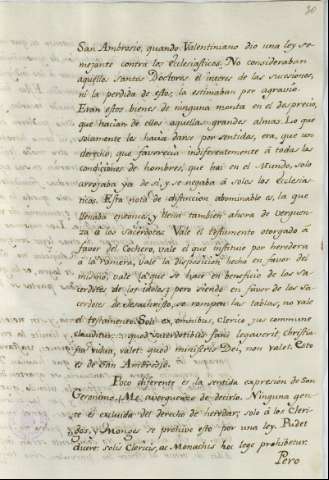 30
San Ambrosio, quando Valentiniano dio una ley se-
mejante contra los Eclesiasticos. No consideraban
aquellos Santos Doctores el interes de las sucesiones,
ni la perdida de esto, la estimaban por agravio.
Eran estos bienes de ninguna monta en el desprecio,
que hacian de ellos aquellas grandes almas. Lo que
solamente les hacia darse por sentidas, era, que un
derecho, que favorecia indiferentemente á todas las
condiciones de hombres, que hai en el Mundo, solo
arrojaba ya de sí, y se negaba á solos los Eclesias-
ticos. Esta nota de distincion abominable es, la que
llenaba entonces, y llena tambien ahora de verguen-
za á los Sacerdotes. Vale el testamento otorgado á
favor del Cochero, vale el que instituie por heredera
á la Ramera, vale la disposicion hecha en favor del
mismo, vale la que se hace en beneficio de los Sa-
cerdotes de los idolos; pero siendo en favor de los Sa-
cerdotes de Jesuchristo, se rompen las tablas, no vale
el testamento. Soli ex omnibus, Clerico jus commune
clauditur: quod sacerdotibus fani legaverit Christia-
na vidua, valet: quod ministris Dei, non valet. Esto
es de San Ambrosio.
Poco diferente es la sentida expresion de San
Geronimo. Me averguenzo de decirlo. Ninguna gen-
te es excluida del derecho de heredar; solo á los Cleri-
gos, y Monges se prohive esto por una ley. Pudet
dicere: solis Clericis, ac Monachis hac lege prohibetur.
Pero